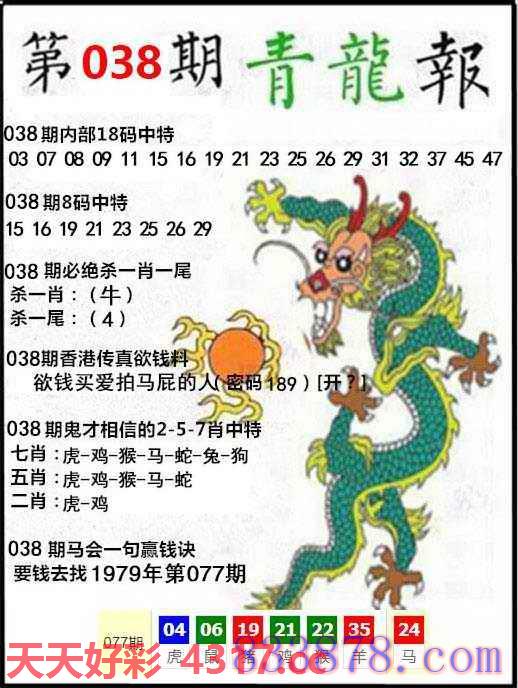 第038期青龍報
038期内部18码中特
03 07 08 09 11 15 16 19 21 23 25 26 29 31 32 37 45 47
038期8码中特
15 16 19 21 23 25 26 29
038期必绝杀一肖一尾
杀一肖：（牛）
杀一尾：（4）
038期香港传真欲钱料
欲钱买爱拍马屁的人(密码189)[开？]
038期鬼才相信的2-5-7肖中特
七肖：虎-鸡-猴-马-蛇-兔-狗
五肖：虎-鸡-猴-马-蛇
二肖：虎-鸡
038期马会一句赢钱诀
要钱去找1979年第077期
077期 04 06 19 21 22 35 24
虎 鼠 猪 鸡 猴 羊 马
天天好彩 4317.cc